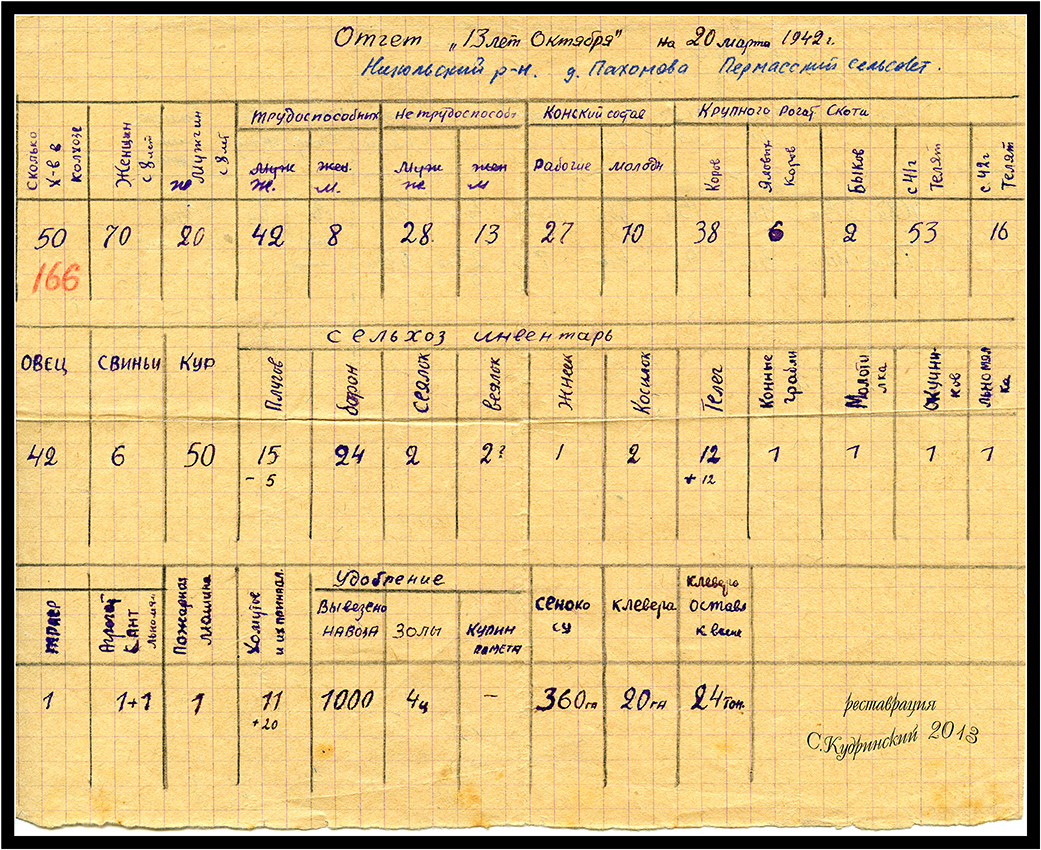 Отчет "13 лет Октября" на 20 марта 1942 г.
Никольский р-н. д. Пахомова Пермасский сельсовет.
Сколько х-в в колхозе
Женщин с 8 лет
Мужчин с 8 лет
Трудоспособных
Муж Ж.
жен. М.
Нетрудоспособ
Муж ж
жен М
Конский состав
Рабочие
молодн
Крупного Рогат Скота
Коров
Яловых Коров
Быков
с 41 г Телят
с. 42 г Телят
50 70 20 42 8 28. 13 27 10 38 6 2 53 16
166
сельхоз инвентарь
Овец Свиньи Кур Плугов борон сеялок веялок Жнеек Косилок Телег Конные грабли Молоти лка Окучни-ков льномял ка
42 6 50 15 24 2 2? 1 2 12 1 1 1 1
- 5 + 12
триер
Агрегат КАНТ льномял
Пожарная машина
Хомутов и их принадл.
Удобрение
Вывезено навоза
Золы
Курин помета
сеноко су
клевера
клевера остав к весне
1 1+1 1 11 1000 4ц – 360 га 20 га 24 тон.
+20
реставрация
С.Кудринский 2013